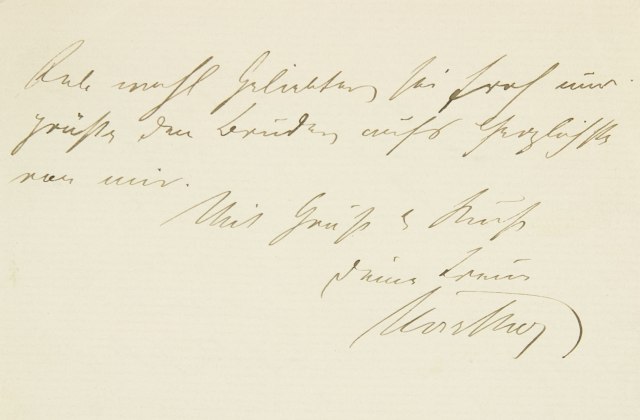 Lebe wohl Geliebter, sei froh und
grüße den Bruder aufs herzlichste
von mir.
Mit Gruß & Kuß
deine treue